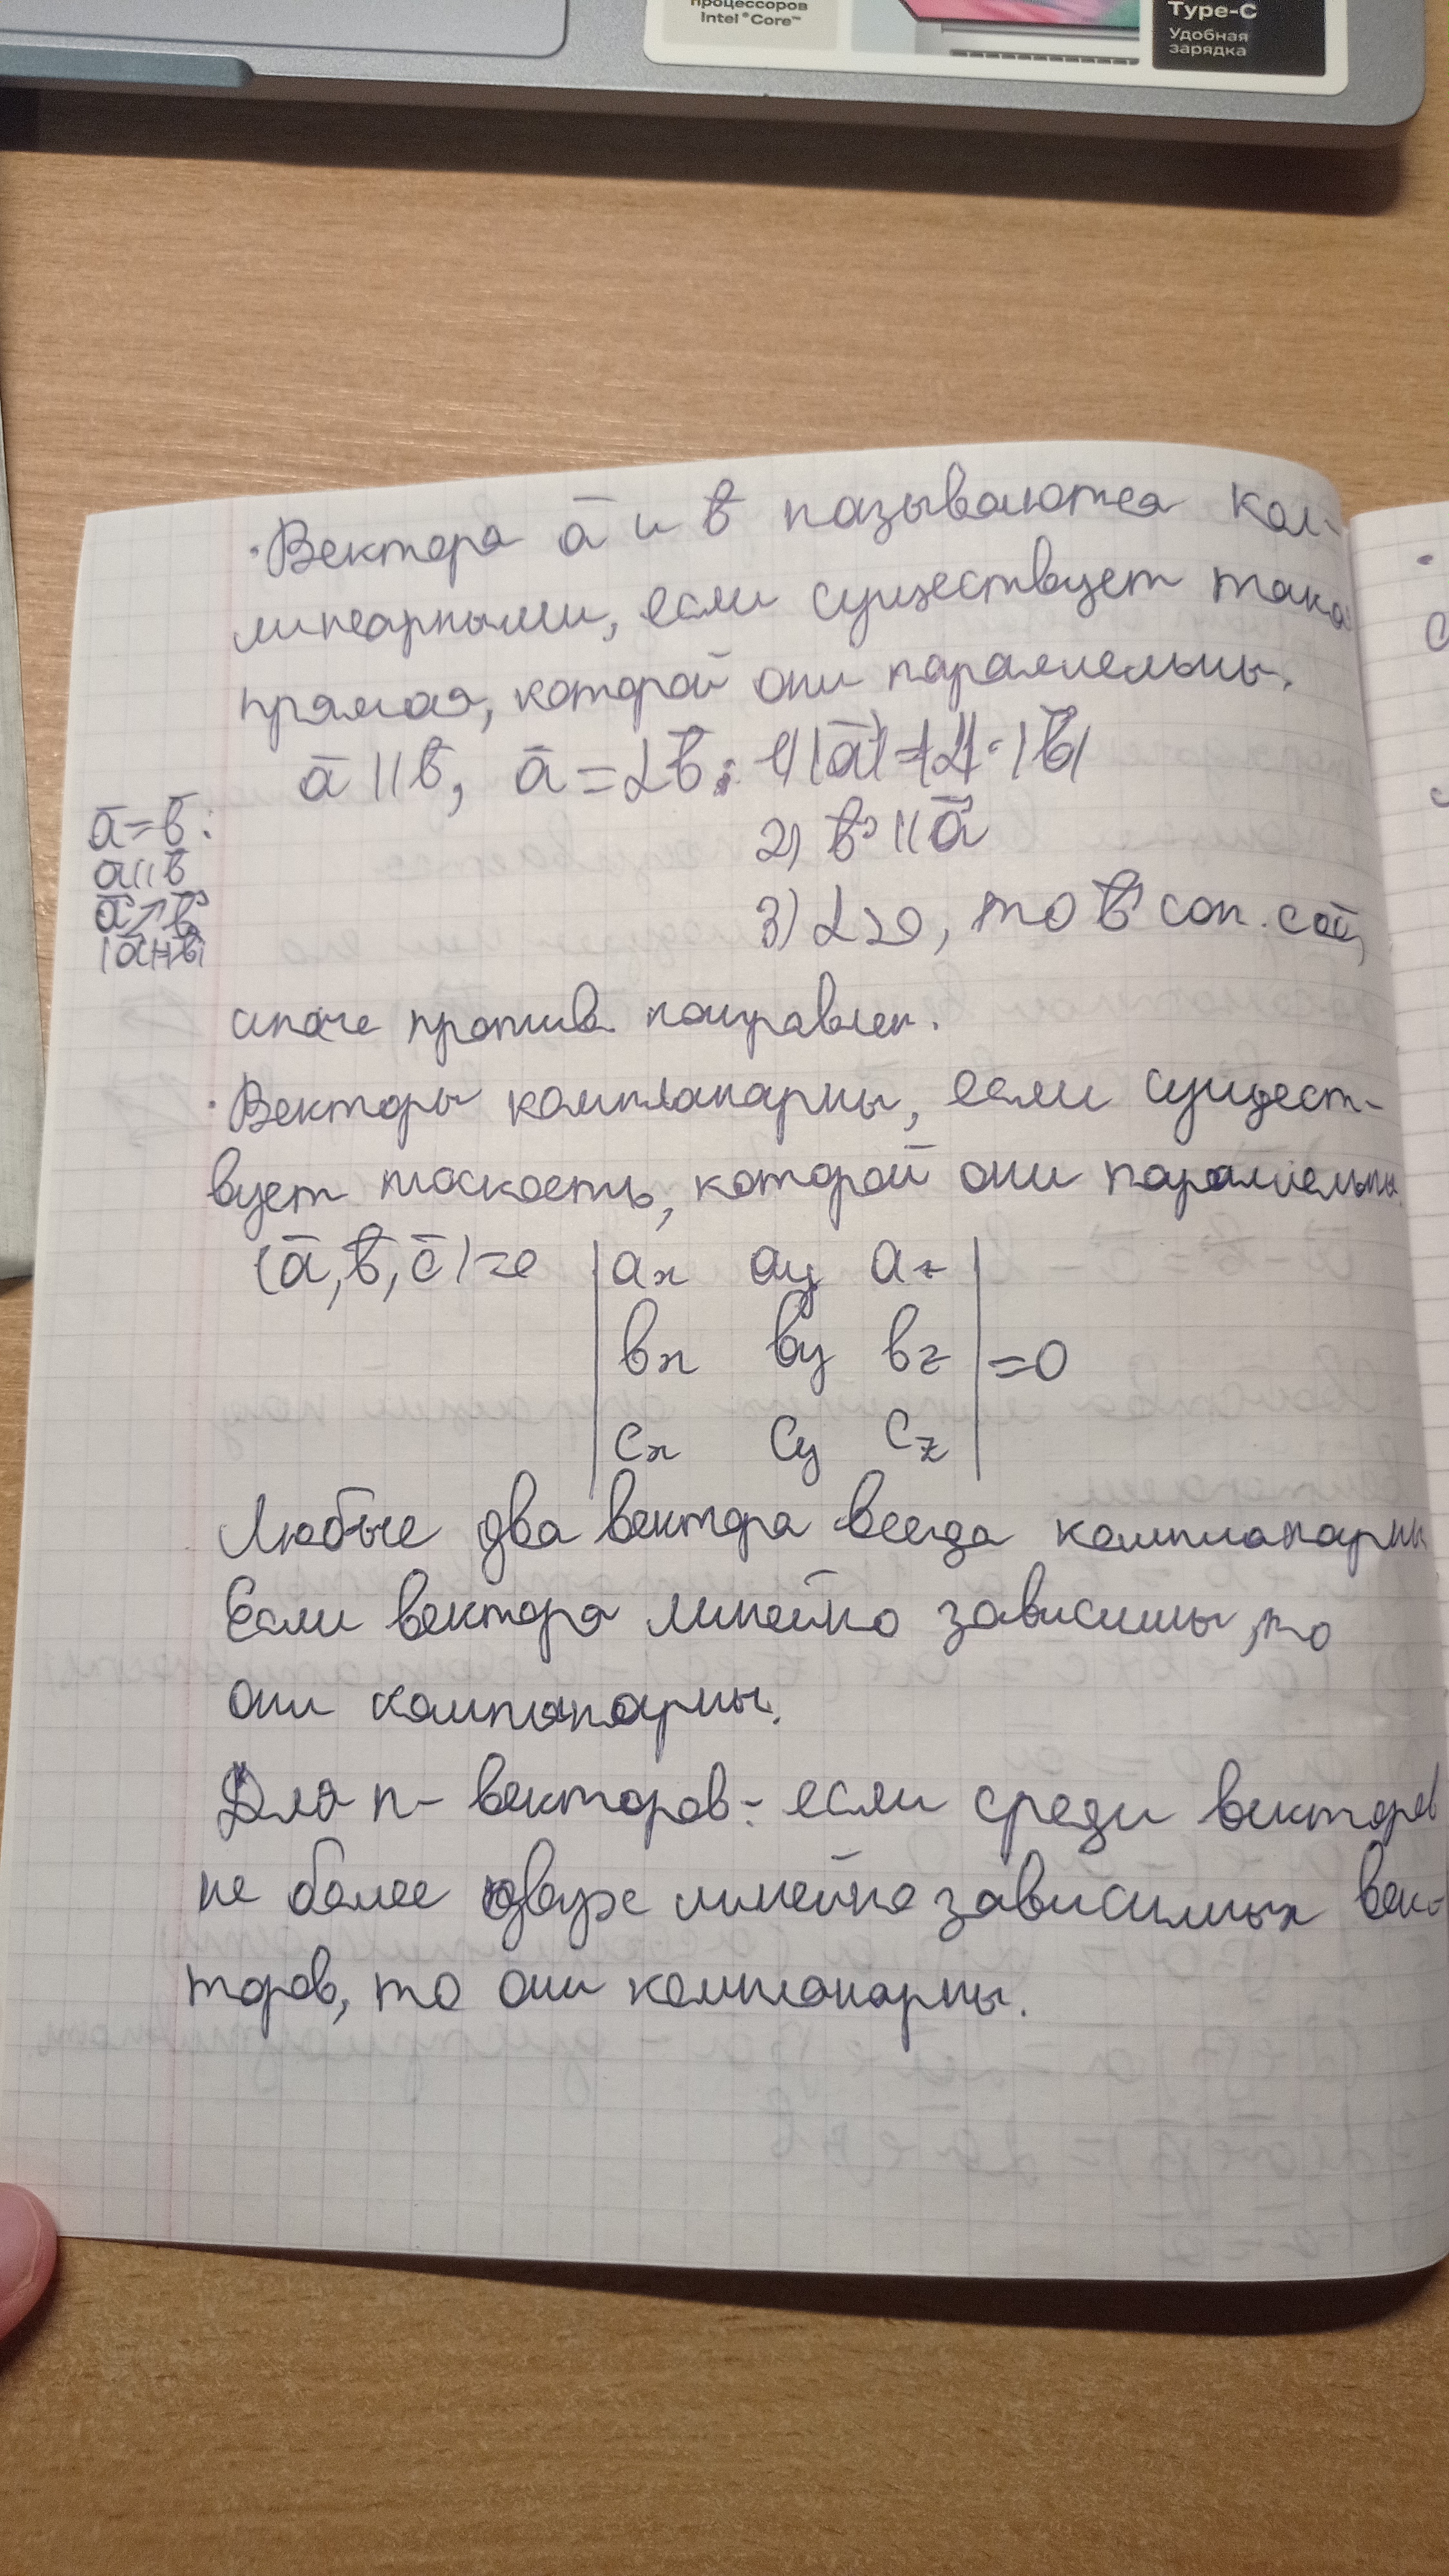 процессоров
Intel® Core™
Type-C
Удобная
зарядка
·Вектора ā и b̄ называются кол-
линеарными, если существует така
прямая, которой они параллельны.
ā || b̄, ā = αb̄: 1) |ā| = |α| · |b̄|
ā = b̄:
ā || b̄
ā ↗ b̄
|ā| = |b̄|
2) b̄ || ā
3) α>0, то b̄ сон. с ā,
иначе против. направлен.
·Векторы компланарны, если сущест-
вует плоскость, которой они параллельны.
(ā, b̄, c̄) = 0 | ax ay az |
| bx by bz | = 0
| cx cy cz |
Любые два вектора всегда компланарны
Если вектора линейно зависимы, то
они компланарны.
Для n- векторов- если среди векторов
не более двух линейно зависимых век-
торов, то они компланарны.